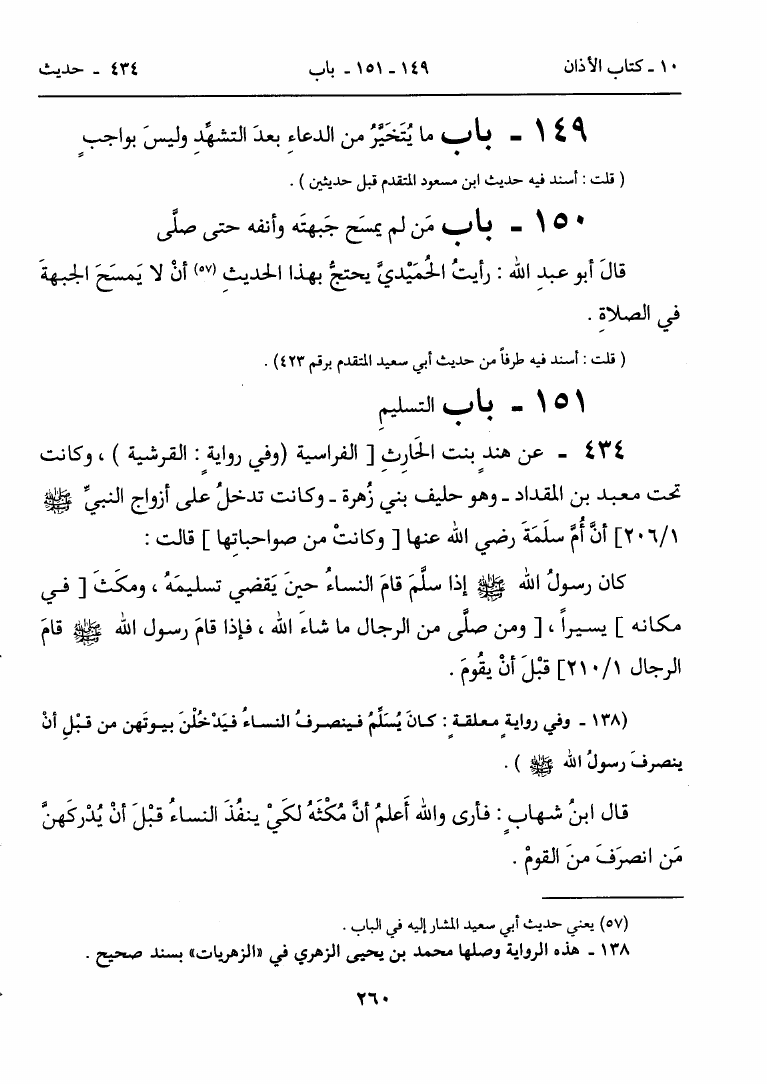 ١٠ ـ كتاب الأذان ١٤٩ ـ ١٥١ ـ باب ٤٣٤ ـ حديث
١٤٩ ـ باب ما يُتَخَيَّرُ من الدعاءِ بعدَ التشهَّدِ وليسَ بواجبٍ
( قلت : أسند فيه حديث ابن مسعود المتقدم قبل حديثين ) .
١٥٠ ـ باب مَن لم يمسَح جَبهتَه وأنفه حتى صلَّى
قالَ أبو عبدِ الله : رأيتُ الحُمَيْديَّ يحتجُّ بهذا الحديثِ (٥٧) أنْ لا يَمسَحَ الجبهةَ
في الصلاةِ .
( قلت : أسند فيه طرفاً من حديث أبي سعيد المتقدم برقم ٤٢٣) .
١٥١ ـ باب التسليمِ
٤٣٤ ـ عن هندٍ بنت الحَارِثِ [ الفراسية (وفي روايةٍ : القرشية ) ، وكانت
تحت معبد بن المقداد ـ وهو حليف بني زُهرة ـ وكانت تدخلُ على أزواج النبيِّ ﷺ
٢٠٦/١] أنَّ أُمَّ سلَمَةَ رضي الله عنها [ وكانتْ من صواحباتِها ] قالت :
كان رسولُ الله ﷺ إذا سلَّمَ قامَ النساءُ حينَ يَقضي تسليمَهُ ، ومكَثَ [ في
مكانه ] يسيراً ، [ ومن صلَّى من الرجال ما شاءَ الله ، فإذا قامَ رسول الله ﷺ قامَ
الرجال ٢١٠/١] قبْلَ أنْ يقُومَ .
(١٣٨ ـ وفي روايةٍ معلقةٍ : كانَ يُسَلِّمُ فينصرفُ النساءُ فيَدْخُلْنَ بيوتَهن من قبْلِ أنْ
ينصرفَ رسولُ الله ﷺ ) .
قال ابنُ شهابٍ : فأرى والله أَعلمُ أنَّ مُكْثَهُ لكَيْ ينفُذَ النساءُ قبْلَ أنْ يُدْركَهنَّ
مَن انصرَفَ منَ القومْ .
(٥٧) يعني حديث أبي سعيد المشار إليه في الباب .
١٣٨ ـ هذه الرواية وصلها محمد بن يحيى الزهري في «الزهريات» بسند صحيح .
٢٦٠